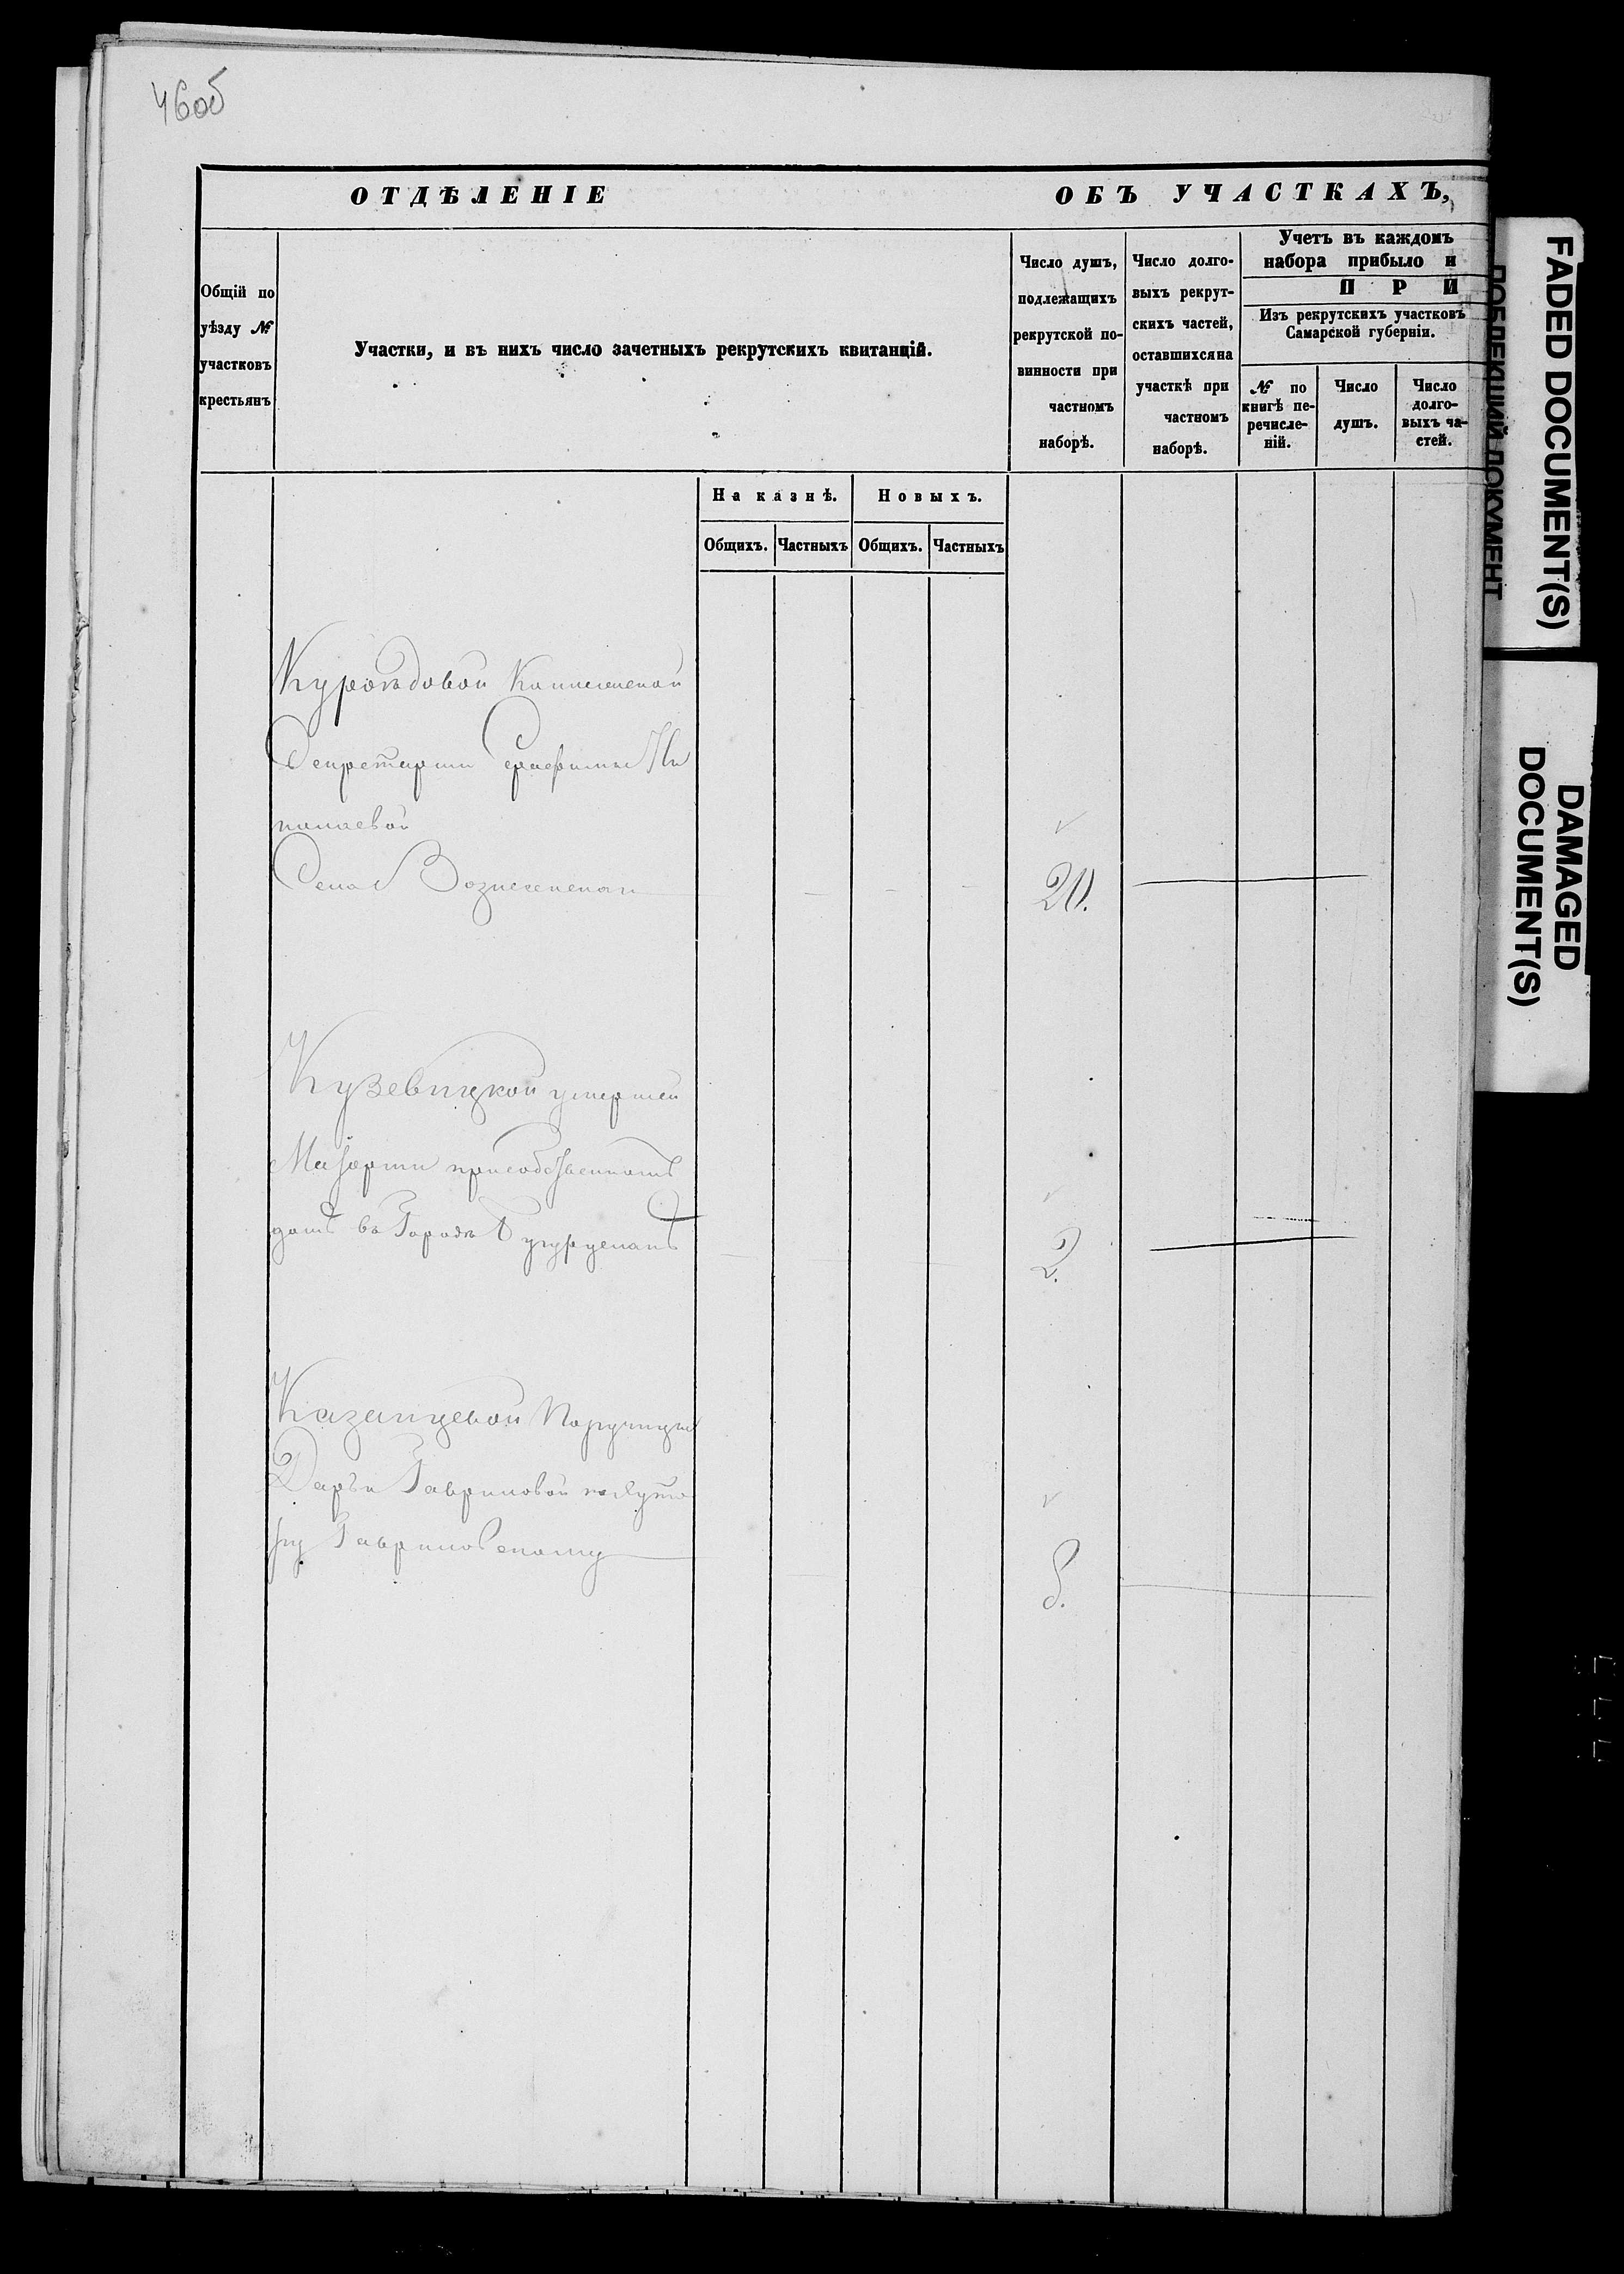 46об
ОТДѢЛЕНІЕ ОБЪ УЧАСТКАХЪ,
Общій по уѣзду № участковъ крестьянъ
Участки, и въ нихъ число зачетныхъ рекрутскихъ квитанцій.
Число душъ, подлежащихъ рекрутской повинности при частномъ наборѣ.
Число долговыхъ рекрутскихъ частей, оставшихся на участкѣ при частномъ наборѣ.
Учетъ въ каждомъ
набора прибыло и
ПРИ
Изъ рекрутскихъ участковъ
Самарской губерніи.
№ по книгѣ перечисленій.
Число душъ.
Число долговыхъ частей.
На казнѣ. Новыхъ.
Общихъ. Частныхъ Общихъ. Частныхъ
Куроѣдовой Коллежской
Секретарши Серафимы Ни
колаевой
Села Вознесенскаго 20.
Кузевицкой умершей
Маіорши при собственномъ
домѣ въ Городѣ Бугурусланѣ 2.
Казанцевой Порутчицы
Дарьи Гавриловой по хуто
ру Гавриловскому 8.
FADED DOCUMENT(S)
ПОБЛЕКШИЙ ДОКУМЕНТ
DAMAGED
DOCUMENT(S)